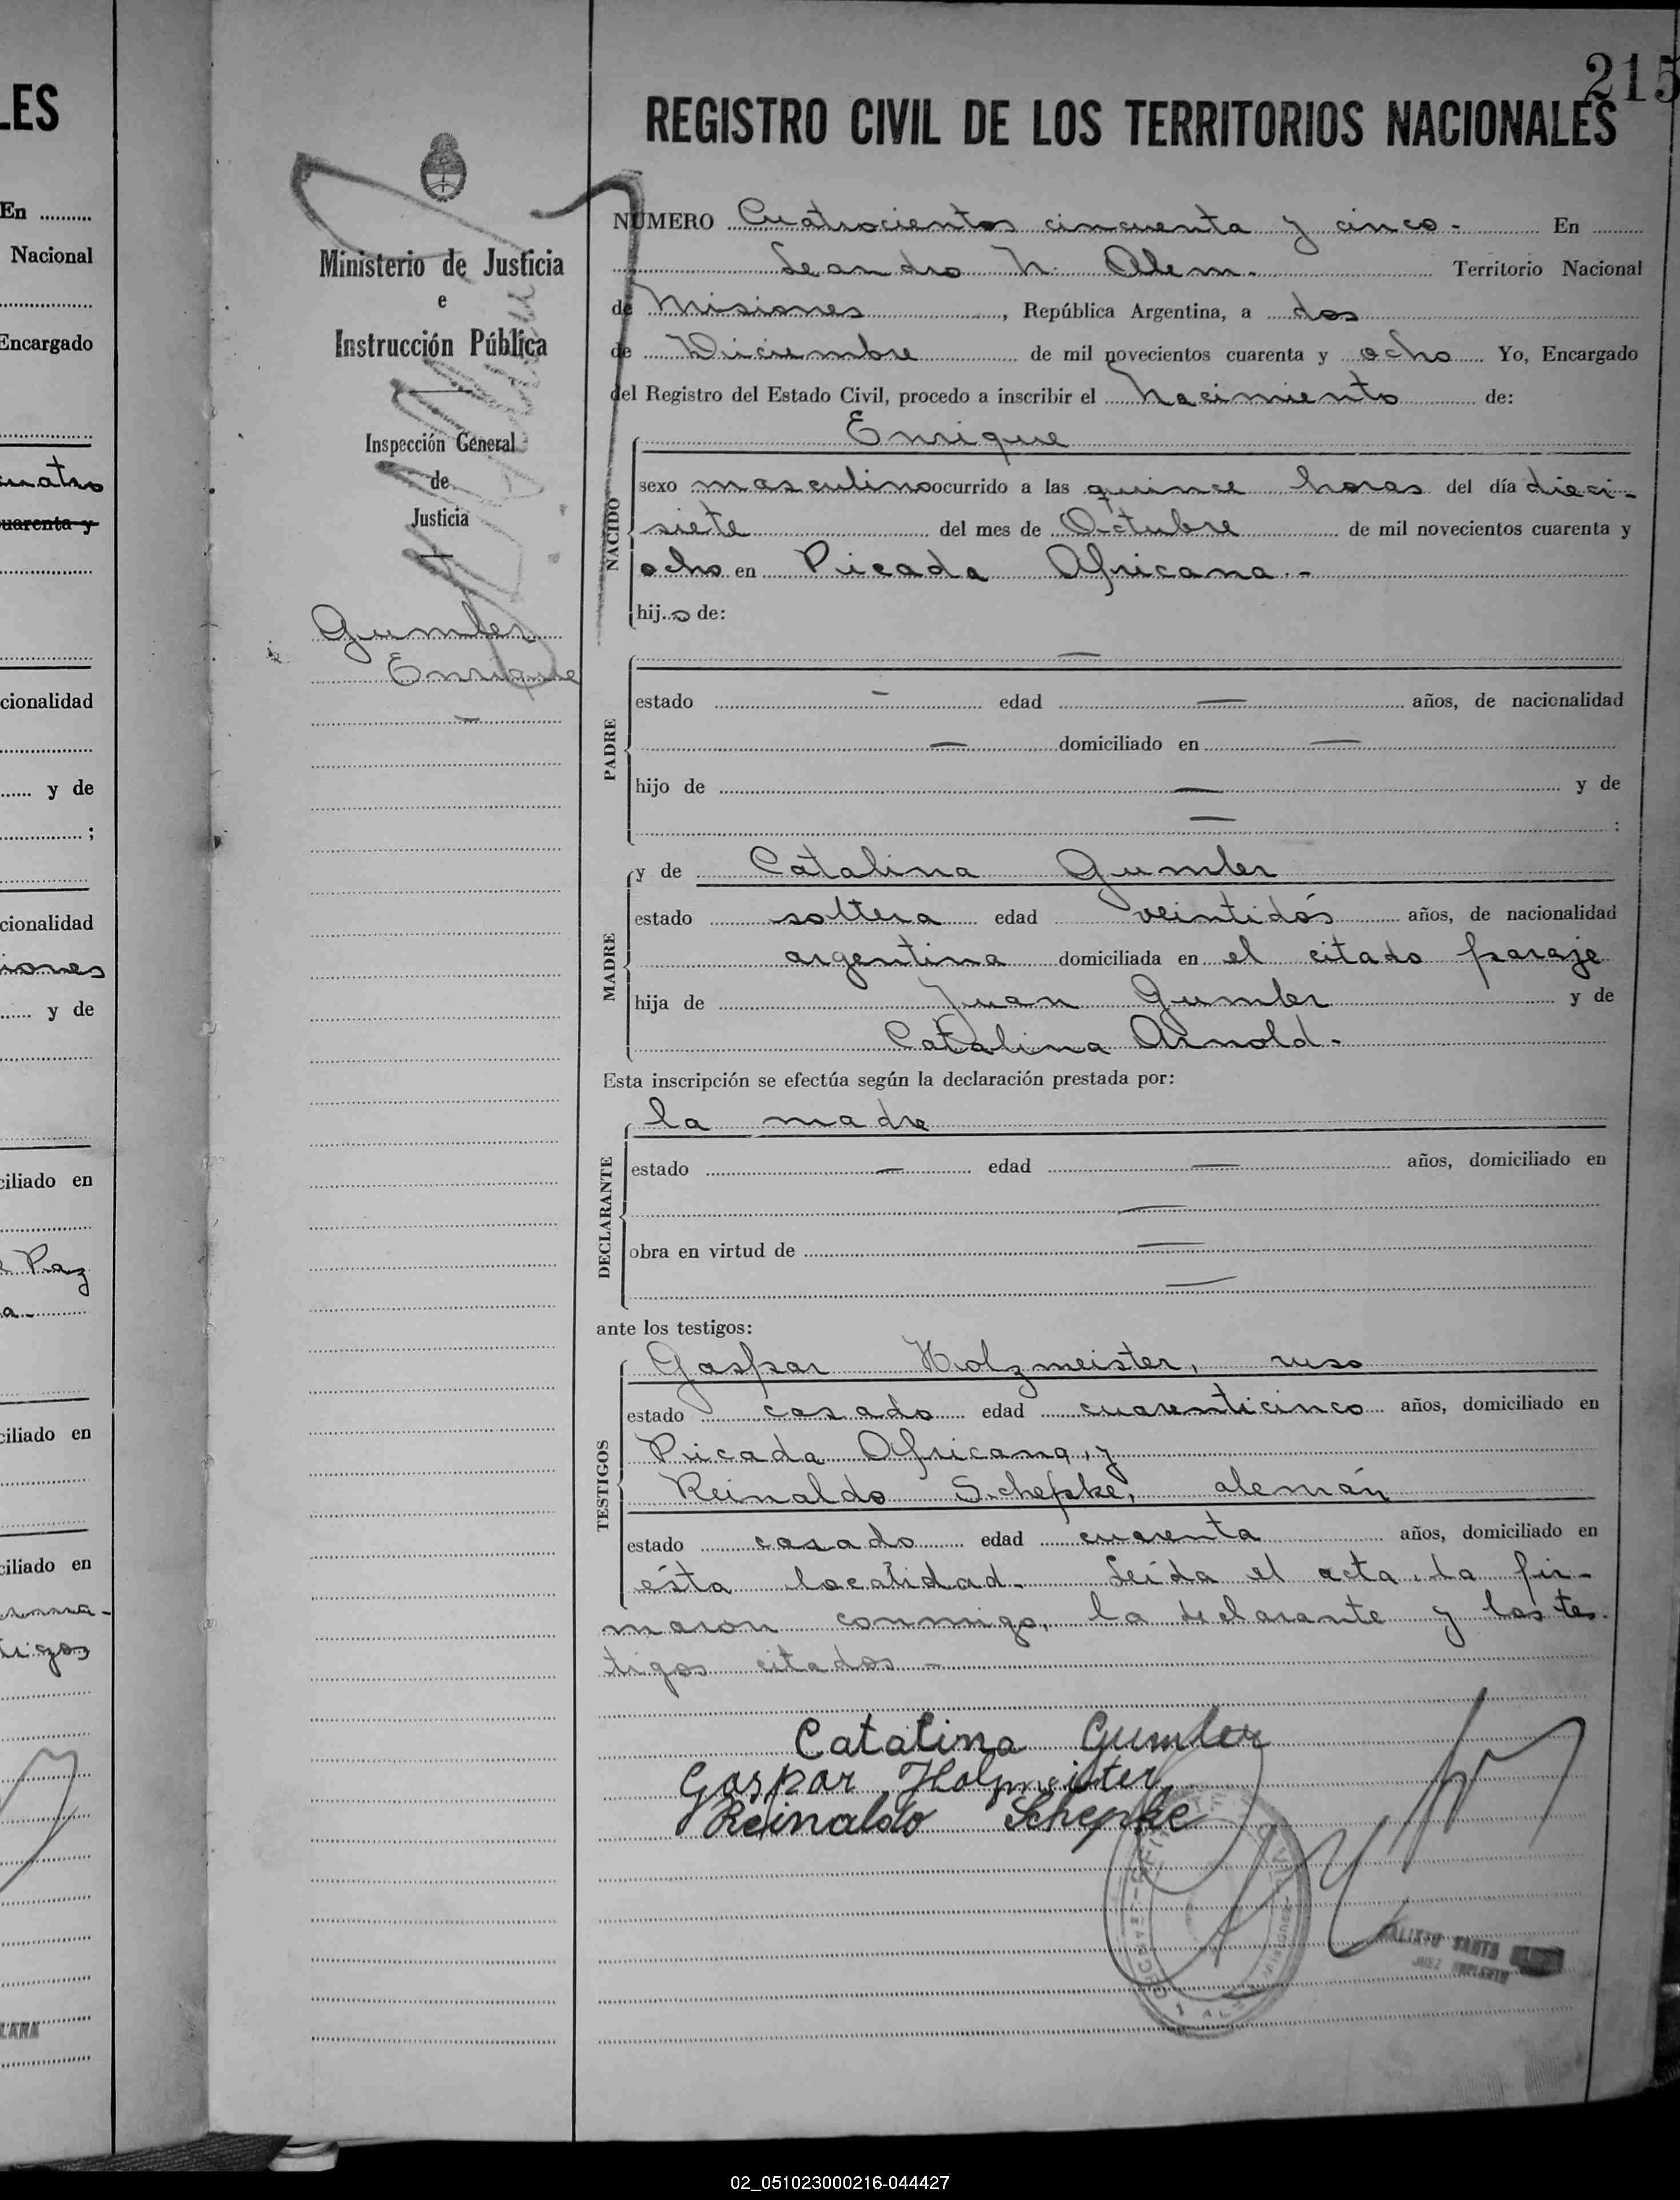 LES
En
Nacional
Encargado
cuatro
cuarenta y
cionalidad
y de
;
cionalidad
iones
y de
ciliado en
Paz
a
ciliado en
ciliado en
tigos
LARA
215
REGISTRO CIVIL DE LOS TERRITORIOS NACIONALES
Ministerio de Justicia
e
Instrucción Pública
Inspección General
de
Justicia
Gumler
Enrique
NÚMERO Cuatrocientos cincuenta y cinco.- En
Leandro N. Alem. Territorio Nacional
de Misiones, República Argentina, a dos
de Diciembre de mil novecientos cuarenta y ocho Yo, Encargado
del Registro del Estado Civil, procedo a inscribir el Nacimiento de:
Enrique
NACIDO
sexo masculino ocurrido a las quince horas del día dieci-
siete del mes de Octubre de mil novecientos cuarenta y
ocho en Picada Africana.-
hijo de:
PADRE
—
estado — edad — años, de nacionalidad
— domiciliado en —
hijo de — y de
— :
MADRE
y de Catalina Gumler
estado soltera edad veintidós años, de nacionalidad
argentina domiciliada en el citado paraje
hija de Juan Gumler y de
Catalina Arnold.
Esta inscripción se efectúa según la declaración prestada por:
DECLARANTE
la madre
estado — edad — años, domiciliado en
—
obra en virtud de —
—
ante los testigos:
TESTIGOS
Gaspar Holzmeister, ruso
estado casado edad cuarenticinco años, domiciliado en
Picada Africana, y
Reinaldo Schepke, alemán
estado casado edad cuarenta años, domiciliado en
ésta localidad. Leída el acta, la fir-
maron conmigo, la declarante y los tes-
tigos citados -
Catalina Gumler
Gaspar Holzmeister
Reinaldo Schepke
CALIXTO SANTA
JUEZ SUPLENTE
02_051023000216-044427